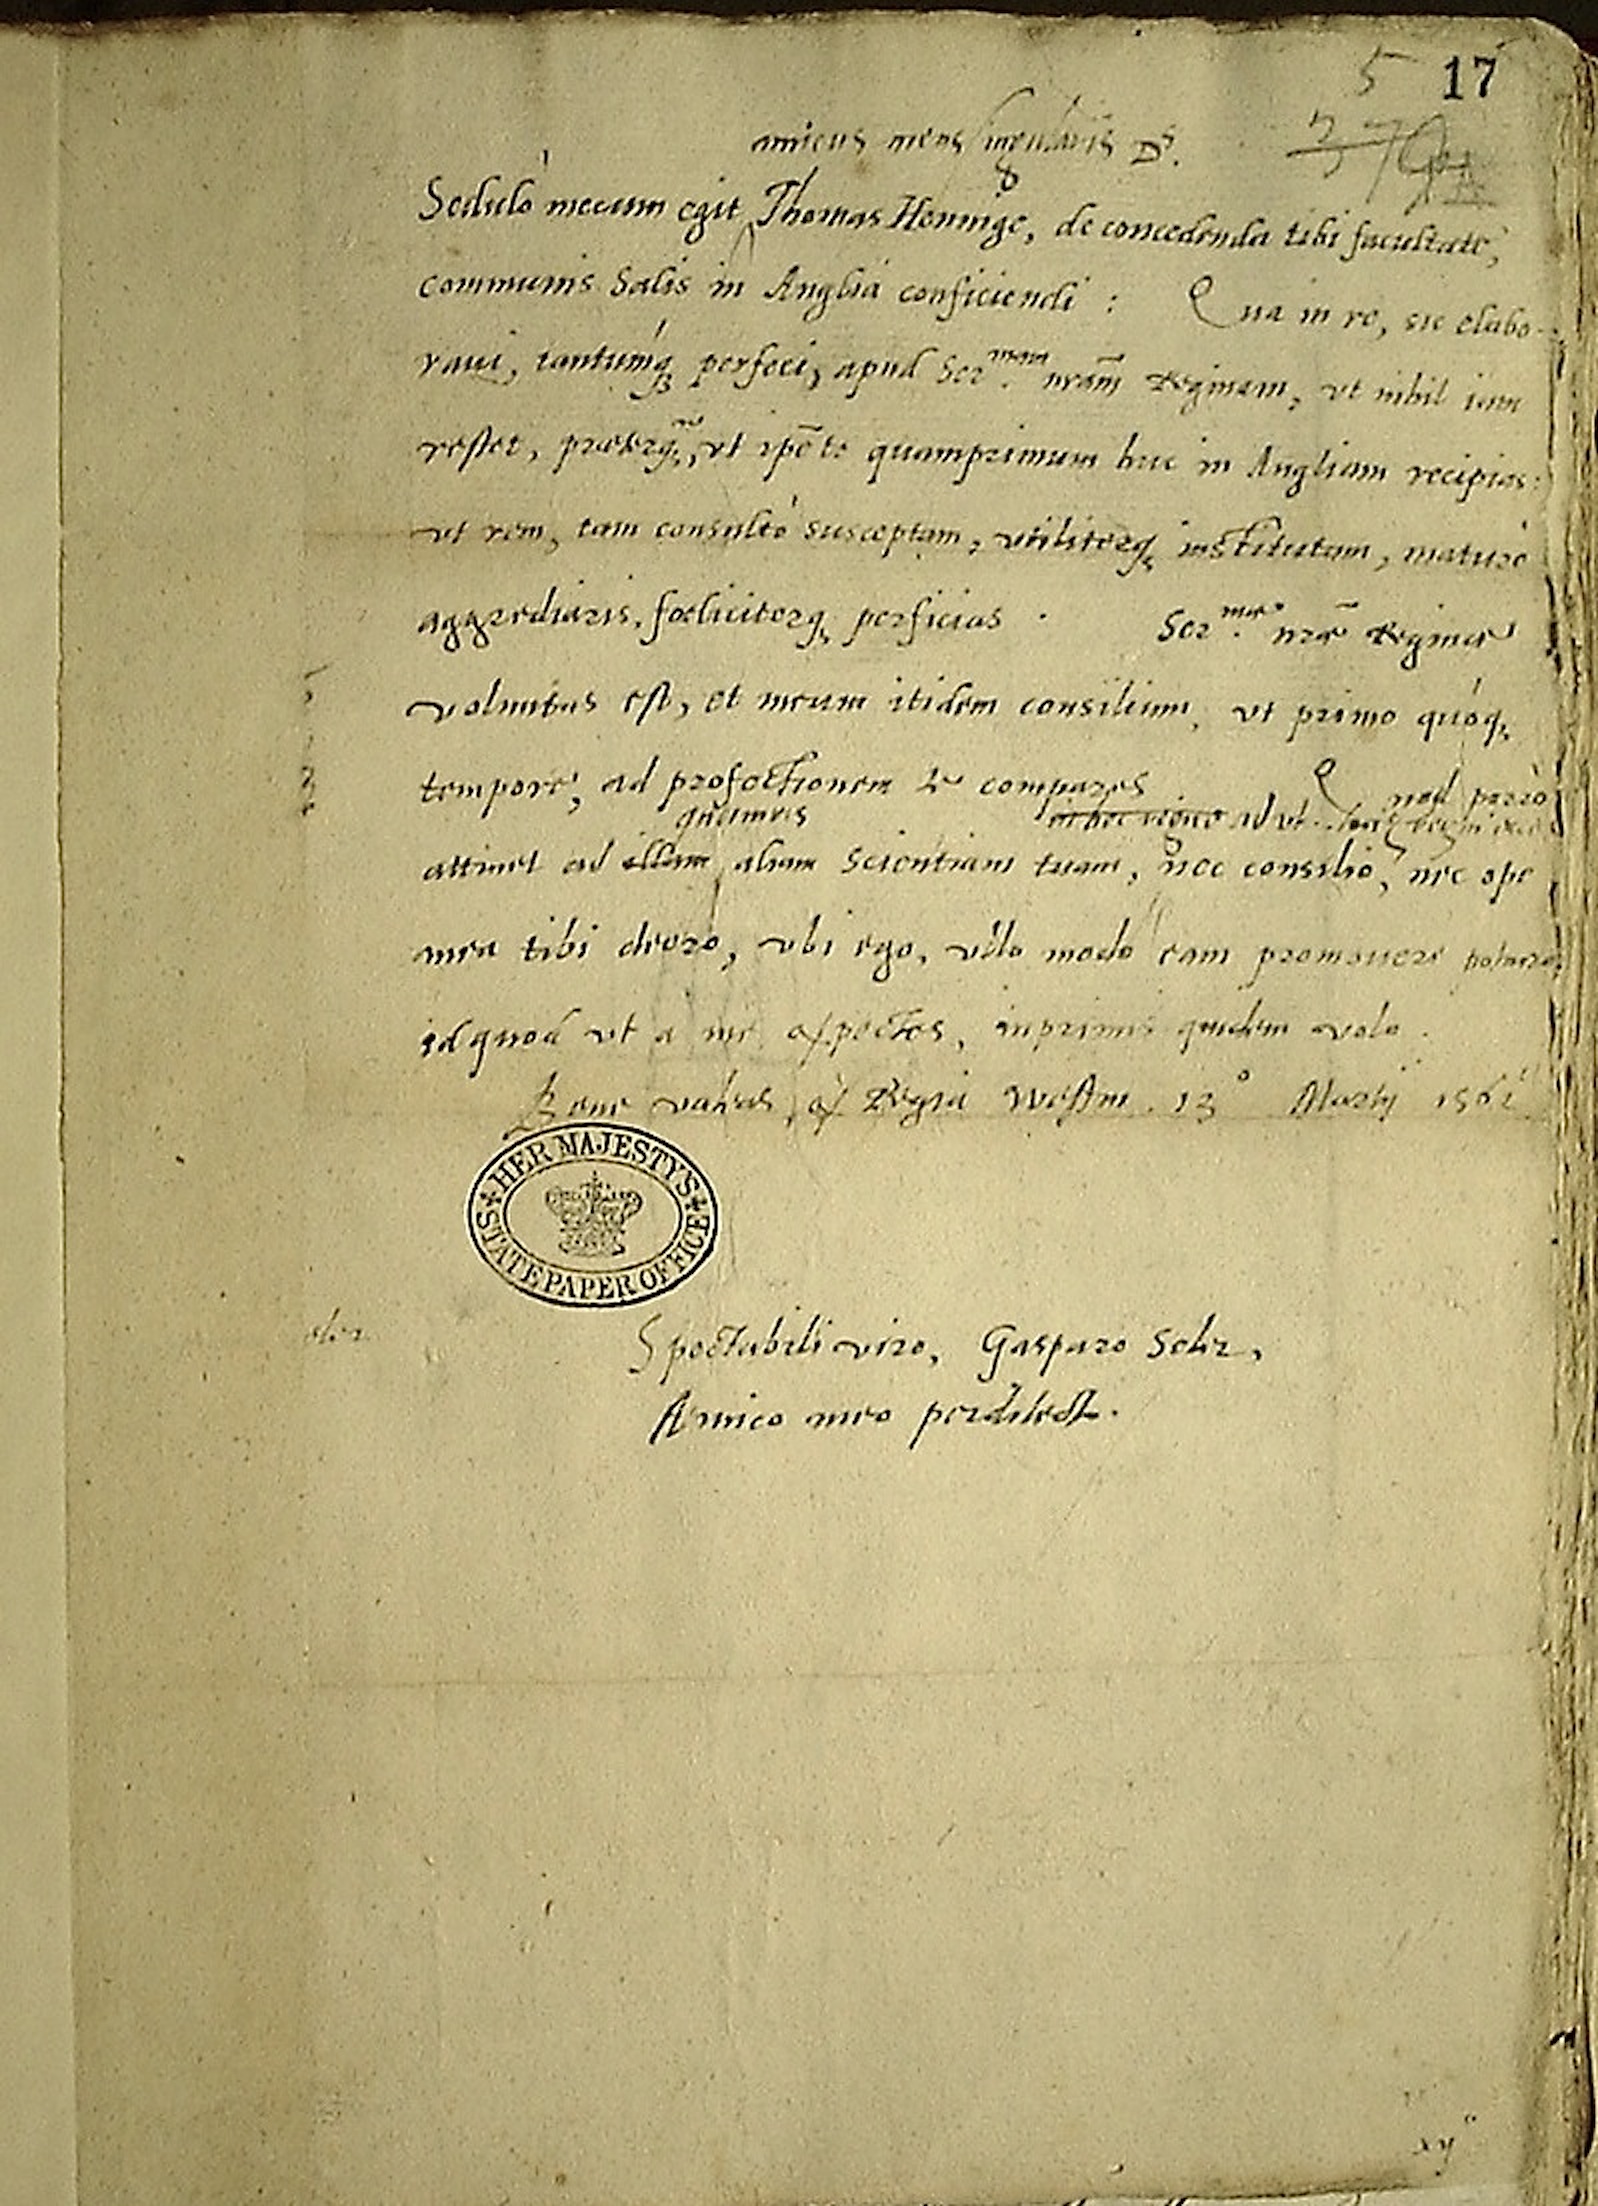 5 17
amicus meus singularis Ds.
Sedulò mecum egit Thomas Heninge, de concedenda tibi facultate,
communis Salis in Anglia conficiendi : Qua in re, sic elabo-
raui, tantumq perfeci, apud Ser.mam nram Reginam, vt nihil iam
restet, præterq, vt ipe te quamprimum huc in Angliam recipias:
vt rem, tam consultò susceptam, vtiliterq institutam, maturè
aggrediaris, fœliciterq perficias . Ser.mæ nræ Reginæ
voluntas est, et meum itidem consilium, vt primo quoq,
tempore, ad profectionem te compares Quod porrò
quamuis in hoc regno ad vt
attinet ad illam aliam scientiam tuam, nec consilio, nec ope
mea tibi deero, vbi ego, vllo modo eam promouere potuero,
id quod vt a me expectes, inprimis quidem volo .
Bene valeas, ex Regia Westm . 13° Martij 1562
HER MAJESTY'S STATE PAPER OFFICE
Spectabili viro, Gasparo Seler,
Amico meo perdilect.
xy